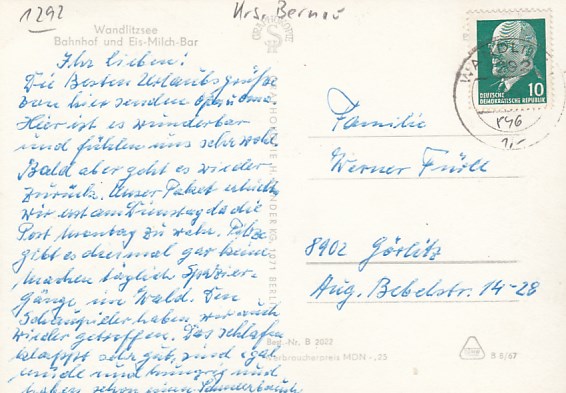 1292
Krs. Bernau
Wandlitzsee
Bahnhof und Eis-Milch-Bar
Ihr Lieben!
Die Besten Urlaubsgrüße
von hier senden Opa u. Oma
Hier ist es wunderbar
und fühlen uns sehr wohl
Bald aber geht es wieder
zurück. Unser Paket erhielten
wir erst am Dienstag da die
Post Montag zu war. Pilze
gibt es diesmal gar keine
machen täglich Spazier-
gänge im Wald. Den
Schauspieler haben wir auch
wieder getroffen. Das schlafen
klappt sehr gut, sind egal
müde und hungrig und
haben schon einen
10
DEUTSCHE
DEMOKRATISCHE REPUBLIK
1292
r46
1,-
Familie
Werner Füll
8902 Görlitz
Aug. Bebelstr. 14-28
KG, 1071 BERLIN
Best.-Nr. B 2022
Verbraucherpreis MDN -,25
B 8/67